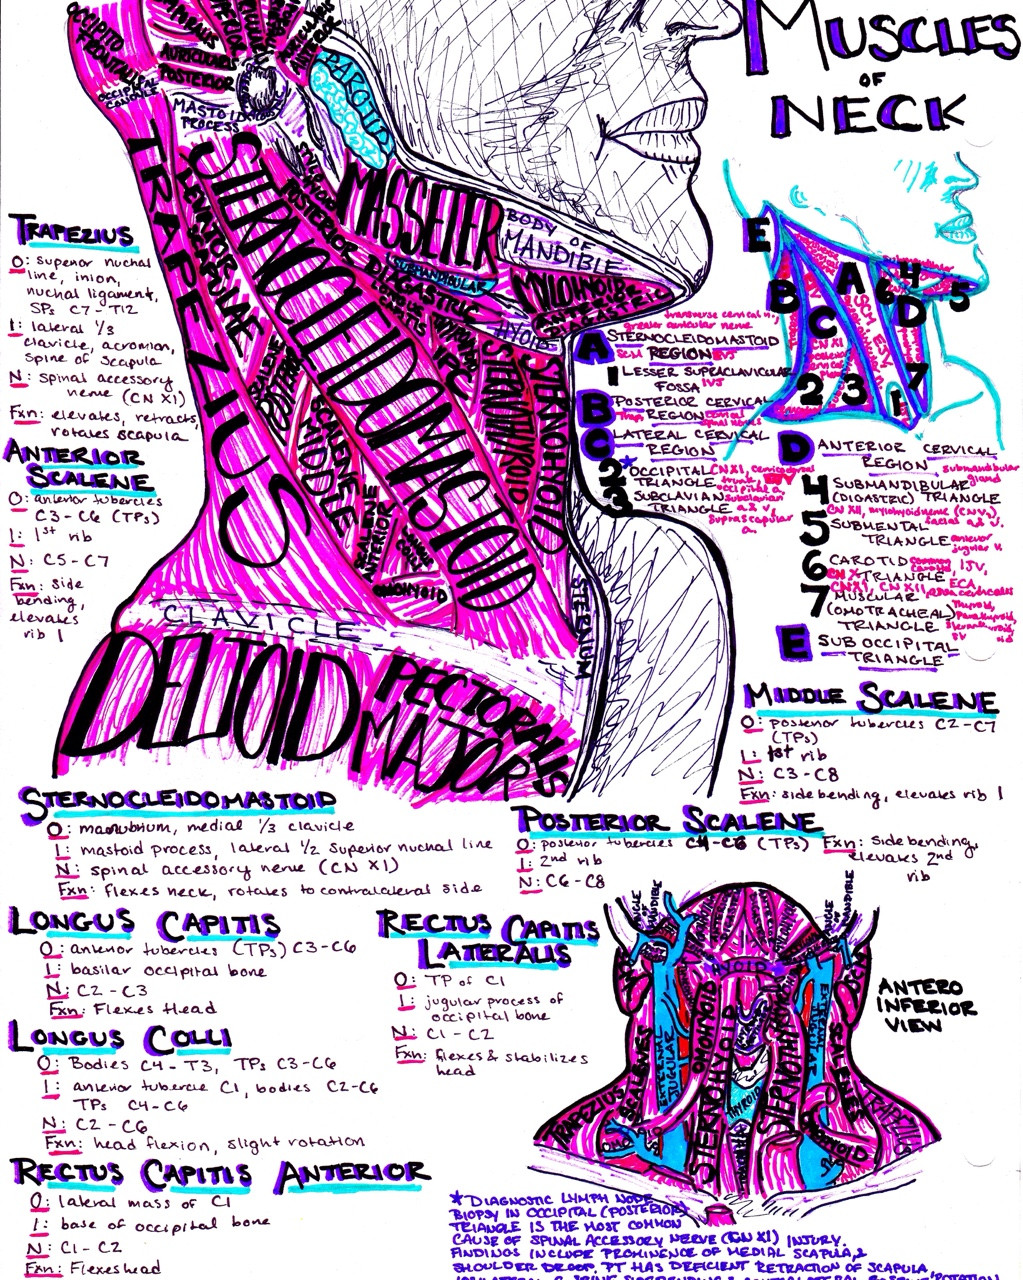 MUSCLES
OF
NECK
OCCIPITO
FRONTALIS
OCCIPITAL
AURICULARIS
POSTERIOR
MASTOID
PROCESS
PAROTID
MASSETER
BODY OF
MANDIBLE
SUBMANDIBULAR
POSTERIOR DIGASTRIC
MYLOHYOID
HYOID
TRAPEZIUS
LEVATOR
SCAPULAE
STERNOCLEIDOMASTOID
SCALENE
MIDDLE
SCALENE
ANTERIOR
OMOHYOID
STERNOTHYROID
STERNOHYOID
STERNUM
CLAVICLE
DELTOID
PECTORALIS
MAJOR
TRAPEZIUS
O: superior nuchal
line, inion,
nuchal ligament,
SPs C7-T12
I: lateral 1/3
clavicle, acromion,
spine of scapula
N: spinal accessory
nerve (CN XI)
Fxn: elevates, retracts,
rotates scapula
ANTERIOR
SCALENE
O: anterior tubercles
C3-C6 (TPs)
I: 1st rib
N: C5-C7
Fxn: side
bending,
elevates
rib 1
E
A
B
C
D
4
5
6
2
3
1
7
transverse cervical n,
greater auricular nerve
A STERNOCLEIDOMASTOID
SCM REGION EJV
1 LESSER SUPRACLAVICULAR
FOSSA IJV
B POSTERIOR CERVICAL
REGION
C LATERAL CERVICAL
REGION
2* OCCIPITAL
TRIANGLE
3 SUBCLAVIAN
TRIANGLE
suprascapular
a.
D ANTERIOR CERVICAL
REGION submandibular
gland
4 SUBMANDIBULAR
(DIGASTRIC) TRIANGLE
CN XII, mylohyoid nerve (CNV3)
facial a & v.
5 SUBMENTAL
TRIANGLE anterior
jugular v.
6 CAROTID common carotid IJV,
TRIANGLE,
7 MUSCULAR
(OMOTRACHEAL)
TRIANGLE
Thyroid,
parathyroid,
E SUBOCCIPITAL
TRIANGLE
MIDDLE SCALENE
O: posterior tubercles C2-C7
(TPs)
I: 1st rib
N: C3-C8
Fxn: sidebending, elevates rib 1
STERNOCLEIDOMASTOID
O: manubrium, medial 1/3 clavicle
I: mastoid process, lateral 1/2 superior nuchal line
N: spinal accessory nerve (CN XI)
Fxn: flexes neck, rotates to contralateral side
POSTERIOR SCALENE
O: posterior tubercles C4-C6 (TPs) Fxn: sidebending,
elevates 2nd
rib
I: 2nd rib
N: C6-C8
LONGUS CAPITIS
O: anterior tubercles (TPs) C3-C6
I: basilar occipital bone
N: C2-C3
Fxn: Flexes Head
RECTUS CAPITIS
LATERALIS
O: TP of C1
I: jugular process of
occipital bone
N: C1-C2
Fxn: flexes & stabilizes
head
LONGUS COLLI
O: Bodies C4-T3, TPs C3-C6
I: anterior tubercle C1, bodies C2-C6
TPs C4-C6
N: C2-C6
Fxn: head flexion, slight rotation
RECTUS CAPITIS ANTERIOR
O: lateral mass of C1
I: base of occipital bone
N: C1-C2
Fxn: Flexes head
ANTERO
INFERIOR
VIEW
ANGLE
OF
MANDIBLE
ANGLE
OF
MANDIBLE
HYOID
OMOHYOID
STERNOHYOID
STERNOTHYROID
THYROID
EXTERNAL
JUGULAR
EXTERNAL
JUGULAR
SCALENES
SCALENES
TRAPEZIUS
TRAPEZIUS
OMOHYOID
*DIAGNOSTIC LYMPH NODE
BIOPSY IN OCCIPITAL (POSTERIOR)
TRIANGLE IS THE MOST COMMON
CAUSE OF SPINAL ACCESSORY NERVE (CN XI) INJURY.
FINDINGS INCLUDE PROMINENCE OF MEDIAL SCAPULA, &
SHOULDER DROOP. PT HAS DEFICIENT RETRACTION OF SCAPULA,